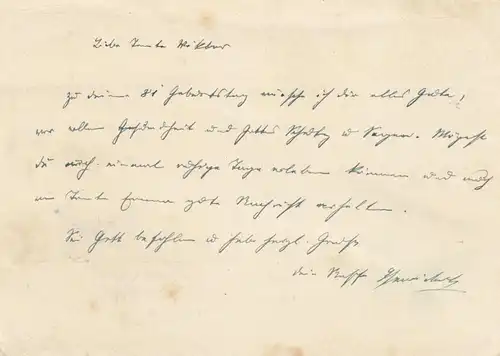 Liebe Tante
zu deinem 81. Geburtstag wünsche ich dir alles Gute,
vor allem Gesundheit und Gottes Schutz u Segen. Mögest
du noch einmal ruhige Tage erleben können und auch
von Tante Emma gute Nachricht erhalten.
Sei Gott befohlen u habe herzl. Grüße
dein Neffe